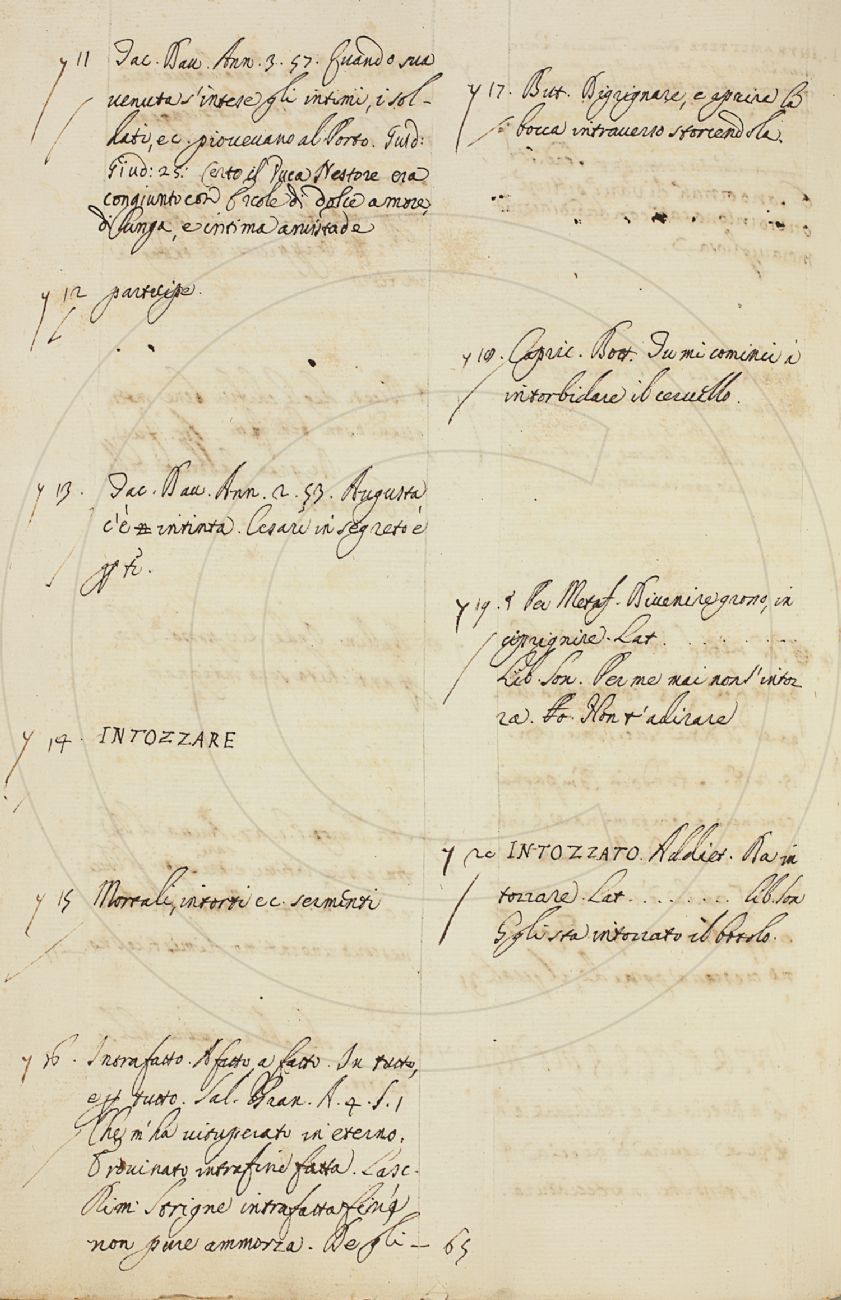 y 11 Tac. Dav. Ann. 3. 57. Quando sua
venuta s'intese gli intimi, i sol-
dati, ec. piovevano al Porto. Guid:
Giud: 25: Certo il Duca Nestore era
congiunto con Ercole di dolce amore,
di lunga, e intima amistade
y 12 partecipe.
y 13. Tac. Dav. Ann. 2. 53. Augusta
c'è intinta. Cesare in segreto è
y 14. INTOZZARE
y 15 Mortali, intorti ec. sermenti
y 16. Intrafatto. Affatto a fatto. In tutto,
e p tutto. Sal. Gran. A. 4. S. 1
Che m'ha vituperato in eterno,
E rovinato intrafine fatta. Lasc.
Rim: Strigne intrafatta
non pure ammorza. Degli - 65
y 17. But. Digrignare, e aprire la
bocca intraverso storcendola.
y 18. Capric. Bott. Tu mi cominci à
intorbidare il cervello.
y 19. § Per Metaf. Divenire grosso, in
ciprignire. Lat . . . . . . . . . .
Lib. Son. Per me mai non s'intoz
za. Fo. Non t'adirare
y 20 INTOZZATO. Addiet. Da in
tozzare. Lat . . . . . . . . . Lib. Son
Egli sta intozzato il bottolo.